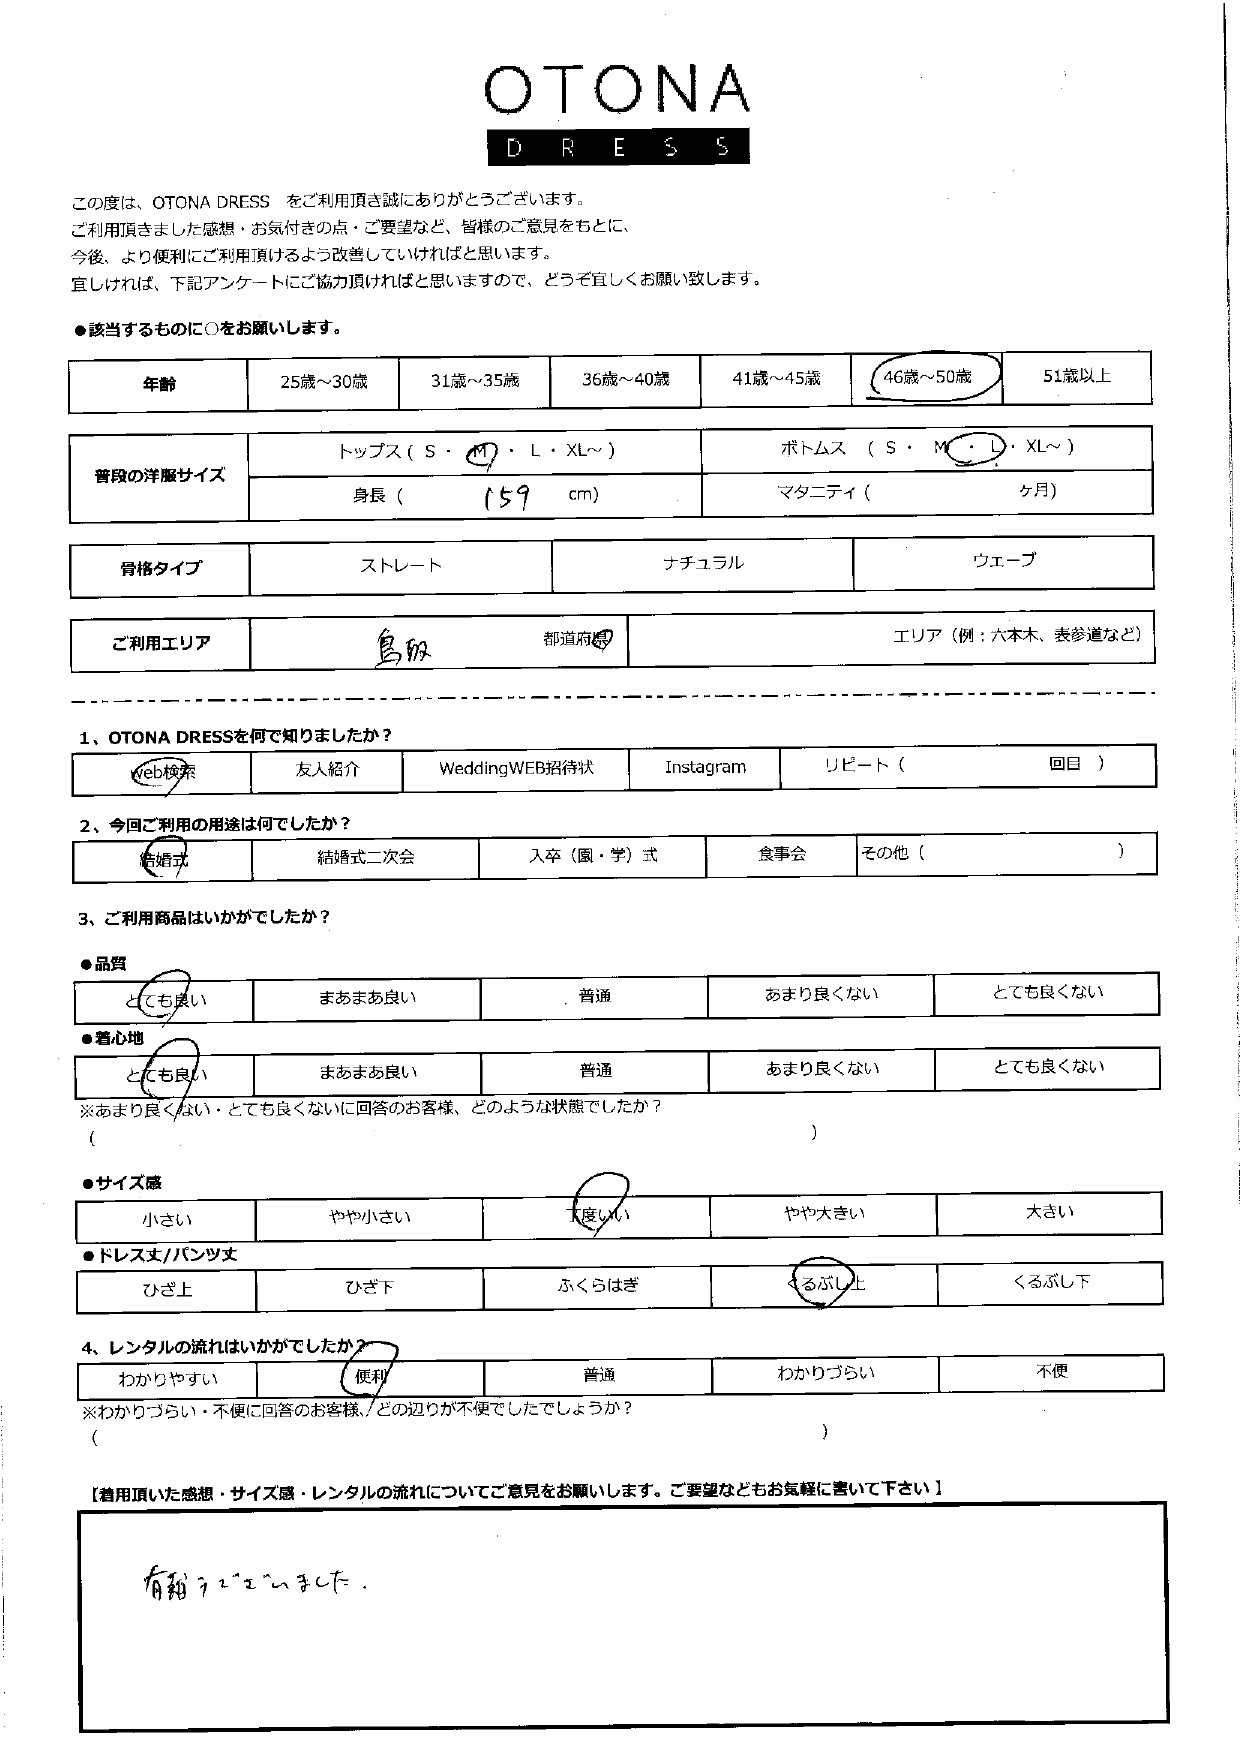 OTONA
DRESS
この度は、OTONA DRESS をご利用頂き誠にありがとうございます。
ご利用頂きました感想・お気付きの点・ご要望など、皆様のご意見をもとに、
今後、より便利にご利用頂けるよう改善していければと思います。
宜しければ、下記アンケートにご協力頂ければと思いますので、どうぞ宜しくお願い致します。
●該当するものに○をお願いします。
年齢 25歳～30歳 31歳～35歳 36歳～40歳 41歳～45歳 46歳～50歳 51歳以上
普段の洋服サイズ トップス ( S ・ M ・ L ・ XL～ ) ボトムス ( S ・ M ・ L ・ XL～ )
身長 ( 159 cm) マタニティ ( ケ月)
骨格タイプ ストレート ナチュラル ウェーブ
ご利用エリア 鳥取 都道府県 エリア（例：六本木、表参道など）
1、OTONA DRESSを何で知りましたか？
web検索 友人紹介 WeddingWEB招待状 Instagram リピート ( 回目 )
2、今回ご利用の用途は何でしたか？
結婚式 結婚式二次会 入卒（園・学）式 食事会 その他 ( )
3、ご利用商品はいかがでしたか？
●品質
とても良い まあまあ良い 普通 あまり良くない とても良くない
●着心地
とても良い まあまあ良い 普通 あまり良くない とても良くない
※あまり良くない・とても良くないに回答のお客様、どのような状態でしたか？
( )
●サイズ感
小さい やや小さい 丁度いい やや大きい 大きい
●ドレス丈/パンツ丈
ひざ上 ひざ下 ふくらはぎ くるぶし上 くるぶし下
4、レンタルの流れはいかがでしたか？
わかりやすい 便利 普通 わかりづらい 不便
※わかりづらい・不便に回答のお客様、どの辺りが不便でしたでしょうか？
( )
【着用頂いた感想・サイズ感・レンタルの流れについてご意見をお願いします。ご要望などもお気軽に書いて下さい】
有難うございました.